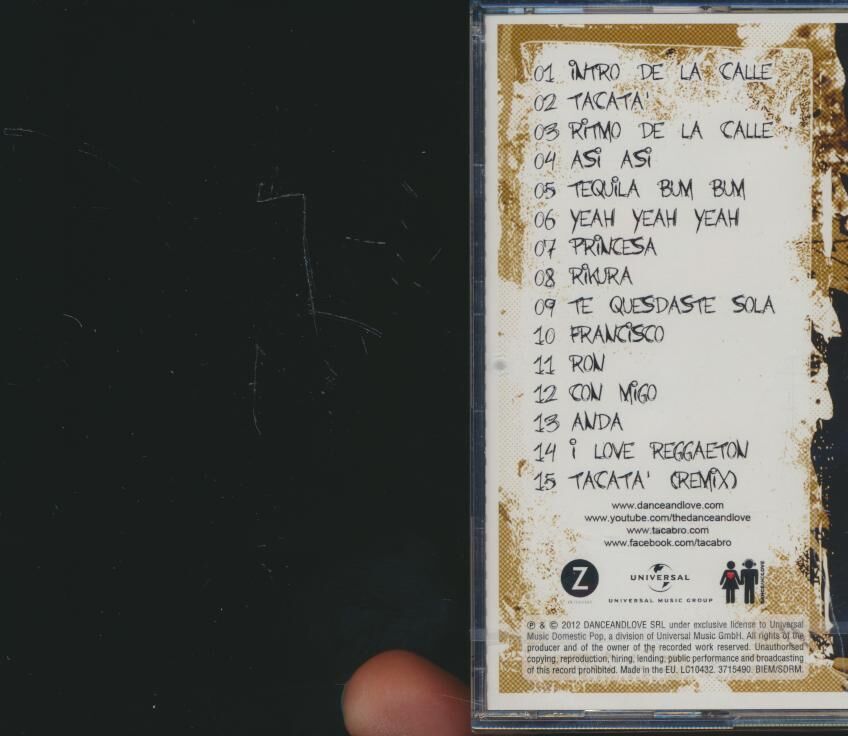 01 INTRO DE LA CALLE
02 TACATA'
03 RITMO DE LA CALLE
04 ASI ASI
05 TEQUILA BUM BUM
06 YEAH YEAH YEAH
07 PRINCESA
08 RIKURA
09 TE QUESDASTE SOLA
10 FRANCISCO
11 RON
12 CON MIGO
13 ANDA
14 i LOVE REGGAETON
15 TACATA' (REMIX)
www.danceandlove.com
www.youtube.com/thedanceandlove
www.tacabro.com
www.facebook.com/tacabro
Z
UNIVERSAL
UNIVERSAL MUSIC GROUP
DANCEANDLOVE
℗ & © 2012 DANCEANDLOVE SRL under exclusive license to Universal
Music Domestic Pop, a division of Universal Music GmbH. All rights of the
producer and of the owner of the recorded work reserved. Unauthorised
copying, reproduction, hiring, lending, public performance and broadcasting
of this record prohibited. Made in the EU. LC10432. 3715490. BIEM/SDRM.